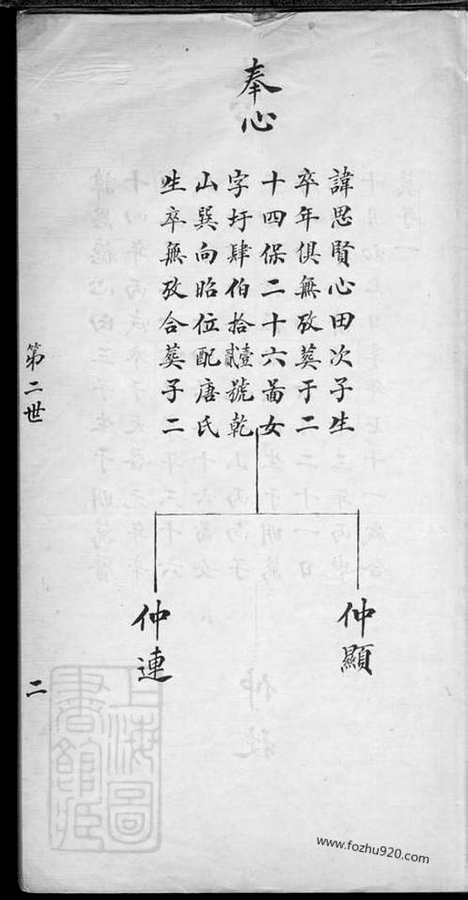 奉心
諱思賢心田次子生
卒年俱無攷葬于二
十四保二十六啚女
字圩肆伯拾壹貳號乾
山巽向昭位配唐氏
生卒無攷合葬子二
仲顯
仲連
第二世
二
上海圖書館藏
www.fozhu920.com